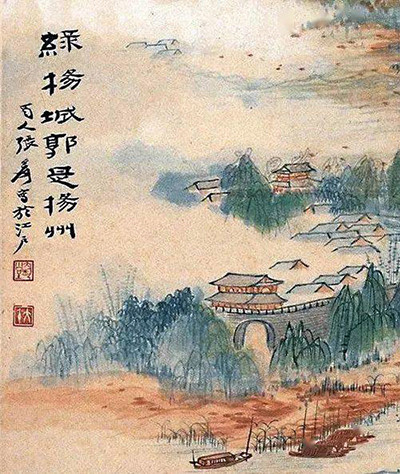 綠楊城郭是揚州
人張爰寫於江戶